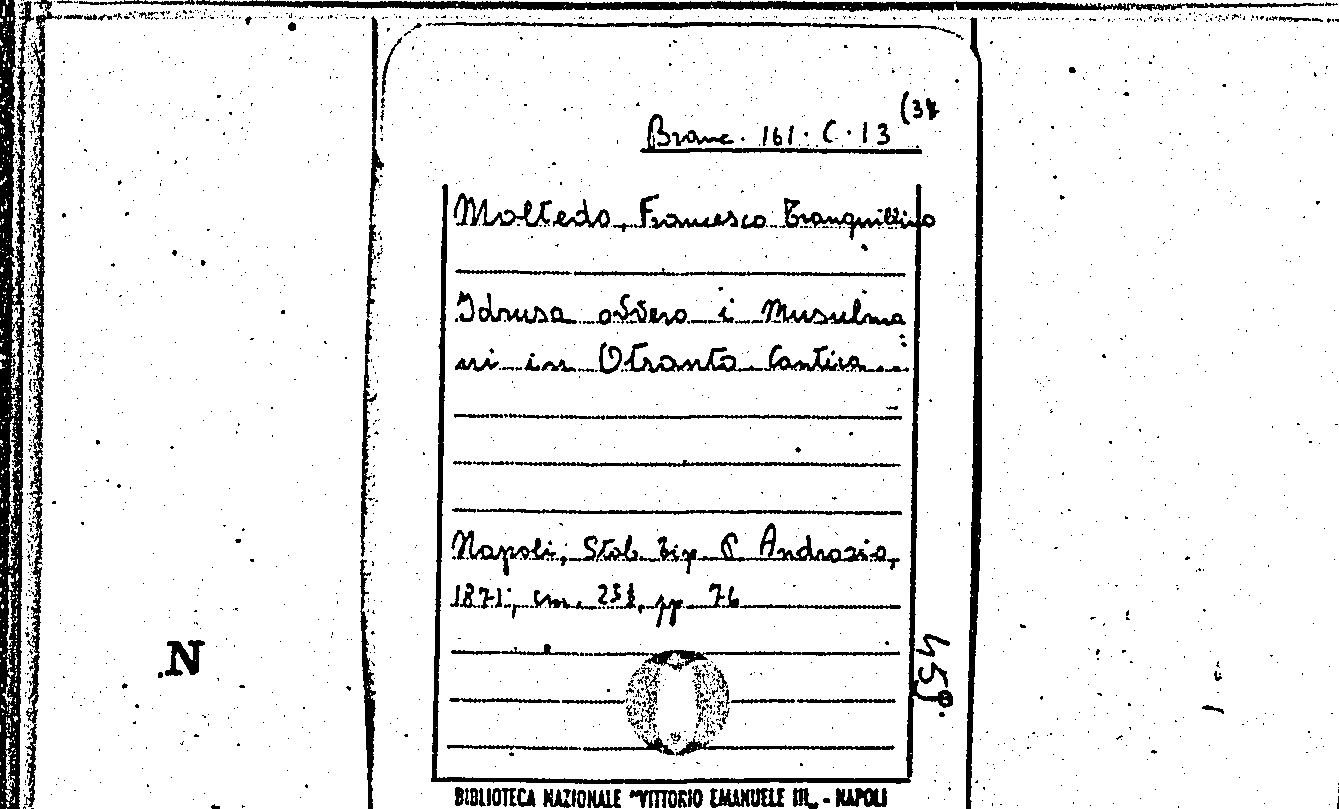 Branc. 161. C. 13 (34
Moltedo, Francesco Tranquillino
Idrusa ovvero i Musulma
ni in Otranto. Cantica...
Napoli, Stab. Tip. P. Androsio,
1871; cm. 23½, pp. 76
459.
N
BIBLIOTECA NAZIONALE "VITTORIO EMANUELE III„ - NAPOLI